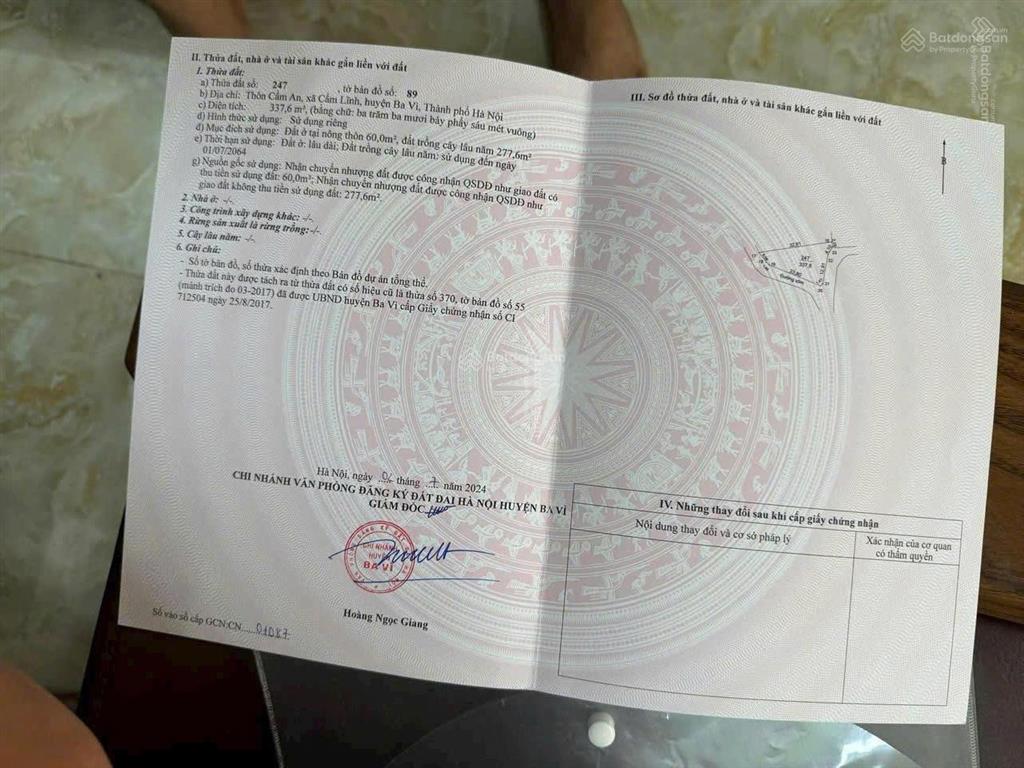 Batdongsan
by PropertyGuru
II. Thửa đất, nhà ở và tài sản khác gắn liền với đất
1. Thửa đất:
a) Thửa đất số: 247 , tờ bản đồ số: 89
b) Địa chỉ: Thôn Cẩm An, xã Cẩm Lĩnh, huyện Ba Vì, Thành phố Hà Nội
c) Diện tích: 337,6 m², (bằng chữ: ba trăm ba mươi bảy phẩy sáu mét vuông)
d) Hình thức sử dụng: Sử dụng riêng
đ) Mục đích sử dụng: Đất ở tại nông thôn 60,0m², đất trồng cây lâu năm 277,6m²
e) Thời hạn sử dụng: Đất ở: lâu dài; Đất trồng cây lâu năm: sử dụng đến ngày
01/07/2064
g) Nguồn gốc sử dụng: Nhận chuyển nhượng đất được công nhận QSDĐ như giao đất có
thu tiền sử dụng đất: 60,0m²; Nhận chuyển nhượng đất được công nhận QSDĐ như
giao đất không thu tiền sử dụng đất: 277,6m².
2. Nhà ở: -/-.
3. Công trình xây dựng khác: -/-.
4. Rừng sản xuất là rừng trồng:-/-.
5. Cây lâu năm: -/-.
6. Ghi chú:
- Số tờ bản đồ, số thửa xác định theo Bản đồ dự án tổng thể.
- Thửa đất này được tách ra từ thửa đất có số hiệu cũ là thửa số 370, tờ bản đồ số 55
(mảnh trích đo 03-2017) đã được UBND huyện Ba Vì cấp Giấy chứng nhận số CI
712504 ngày 25/8/2017.
Hà Nội, ngày tháng 7 năm 2024
CHI NHÁNH VĂN PHÒNG ĐĂNG KÝ ĐẤT ĐAI HÀ NỘI HUYỆN BA VÌ
GIÁM ĐỐC
CHI NHÁNH
HUYỆN
BA VÌ
Hoàng Ngọc Giang
Số vào sổ cấp GCN:CN.....01087
III. Sơ đồ thửa đất, nhà ở và tài sản khác gắn liền với đất
B
247
337,6
Đường xóm
IV. Những thay đổi sau khi cấp giấy chứng nhận
Nội dung thay đổi và cơ sở pháp lý
Xác nhận của cơ quan
có thẩm quyền
Batdongsan